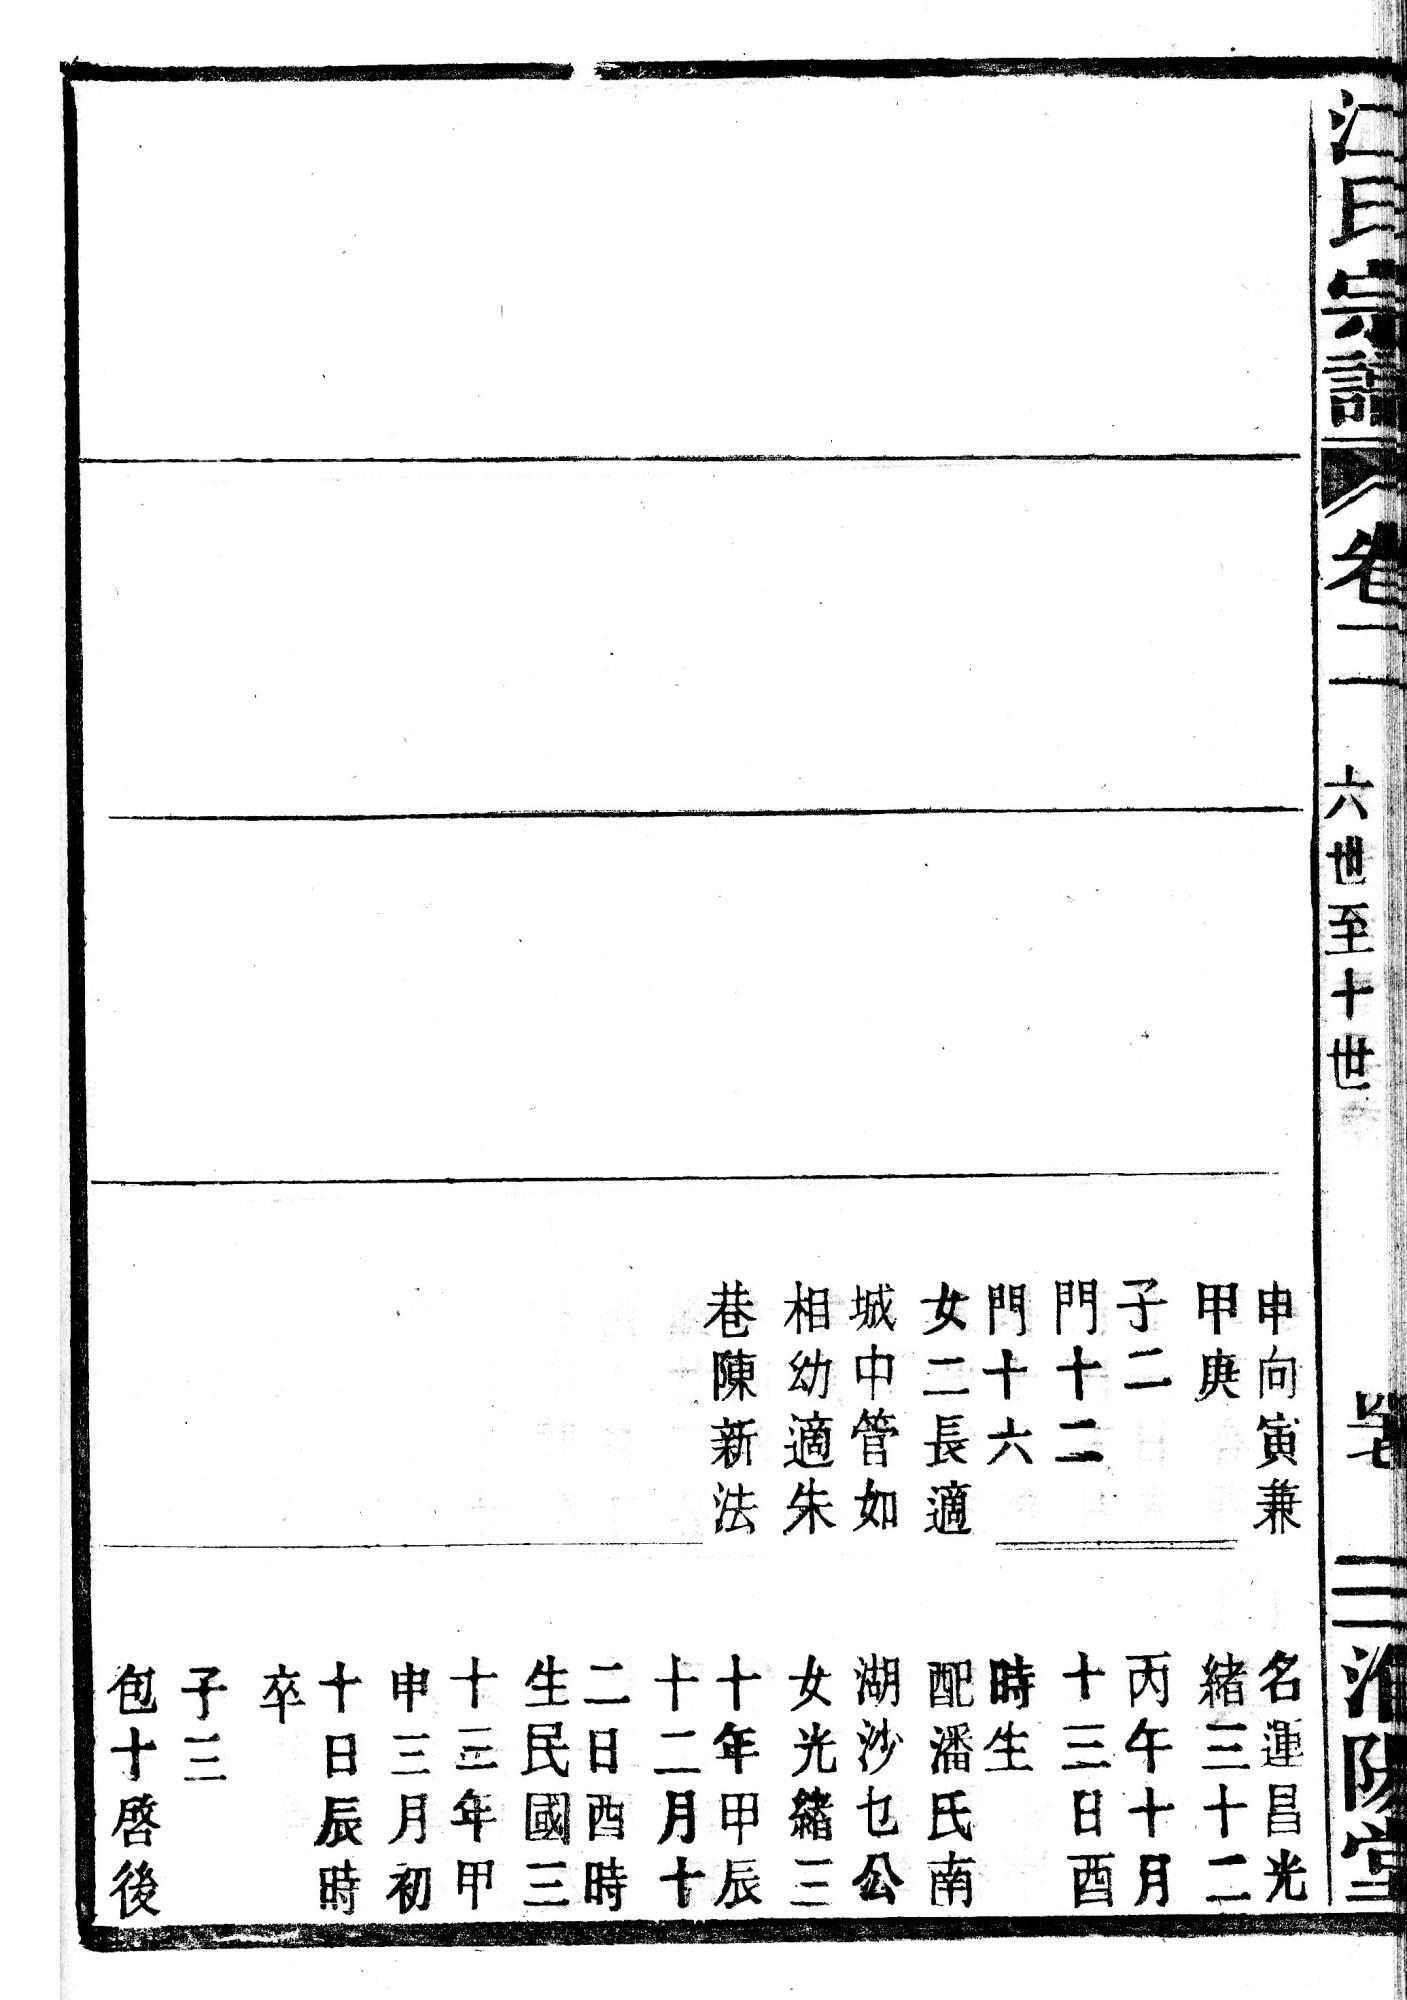 江氏宗譜
卷二
六世至十世
淮陽堂
申向寅兼
甲庚
子二
門十二
門十六
女二長適
城中管如
相幼適朱
巷陳新法
名運昌光
緒三十二
丙午十月
十三日酉
時生
配潘氏南
湖沙乜公
女光緒三
十年甲辰
十二月十
二日酉時
生民國三
十三年甲
申三月初
十日辰時
卒
子三
包十啓後